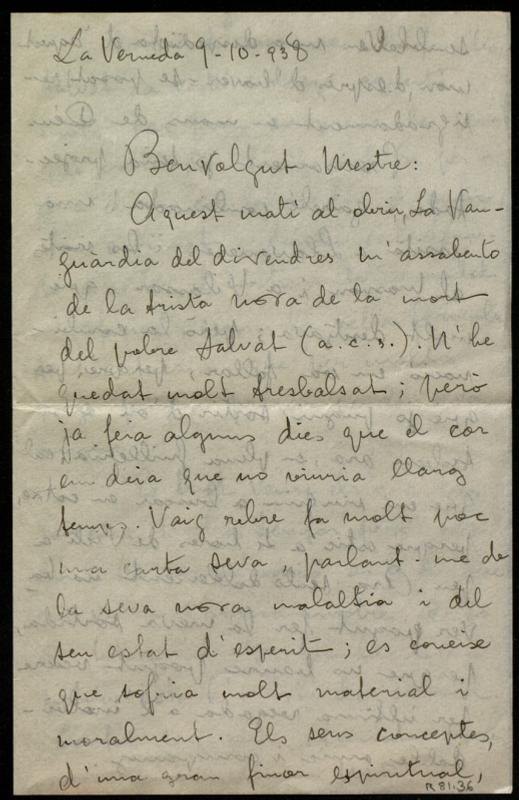 La Verneda 9-10-938
Benvolgut Mestre:
Aquest matí al obrir "La Van-
guàrdia del divendres m'assabento
de la trista nova de la mort
del pobre Salvat (a.c.s.) N'he
quedat molt trasbalsat; però
ja feia alguns dies que el cor
em deia que no viuria llarg
temps. Vaig rebre fa molt poc
una carta seva, parlant-me de
la seva nova malaltia i del
seu estat d'esperit; es coneixe
que sofria molt material i
moralment. Els seus conceptes,
d'una gran finor espiritual,
R81.36